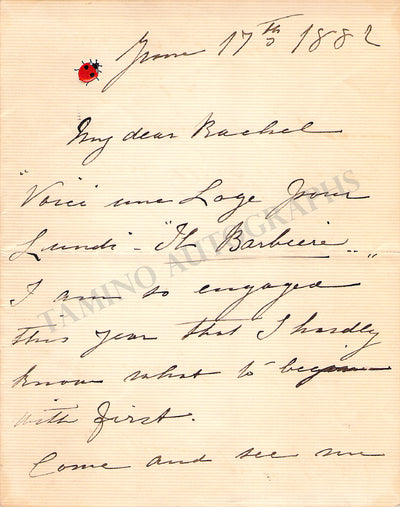 June 17th 1882
My dear Rachel
"Voici une Loge pour
Lundi - "Il Barbiere"
I am so engaged
this year that I hardly
know what to begin
with first.
Come and see me
TAMINO AUTOGRAPHS